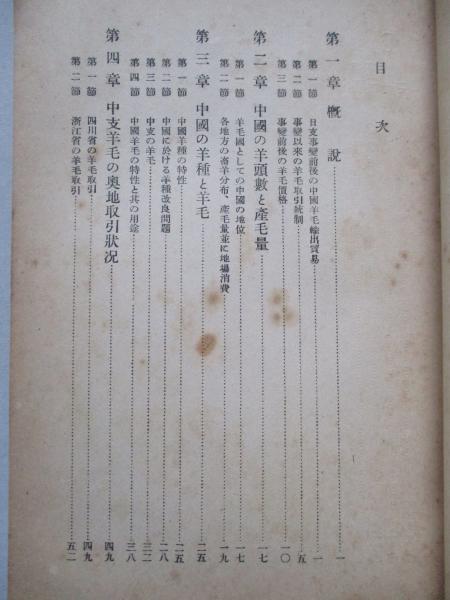 目次
第一章 概説……一
第一節 日支事變前後の中國羊毛輸出貿易……一
第二節 事變以來の羊毛取引統制……五
第三節 事變前後の羊毛價格……一〇
第二章 中國の羊頭數と產毛量……一七
第一節 羊毛國としての中國の地位……一七
第二節 各地方の畜羊分布、產毛量並に地場消費……一九
第三章 中國の羊種と羊毛……二五
第一節 中國羊種の特性……二五
第二節 中國に於ける羊種改良問題……二八
第三節 中支の羊毛……三二
第四節 中國羊毛の特性と其の用途……三八
第四章 中支羊毛の奧地取引狀況……四九
第一節 四川省の羊毛取引……四九
第二節 浙江省の羊毛取引……五二